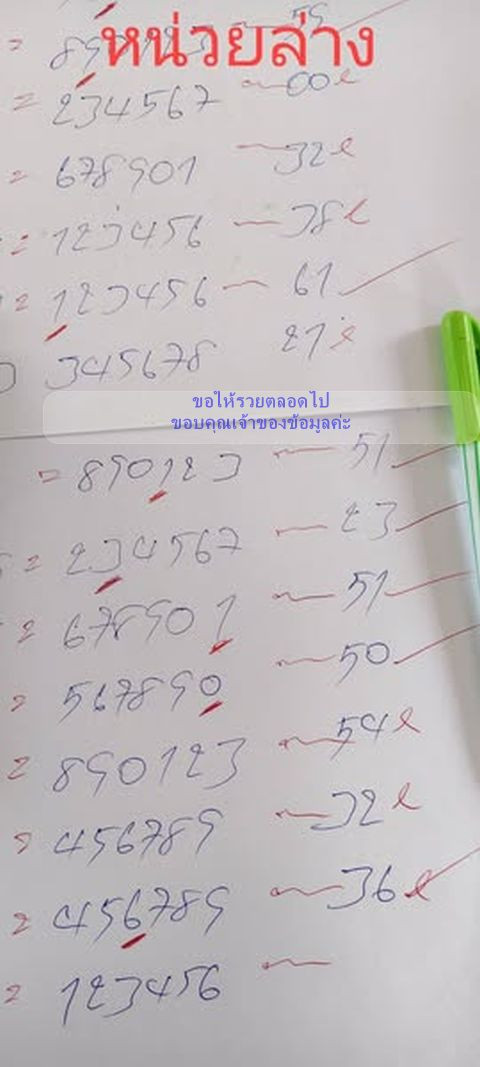 หน่วยล่าง
= 890123 — 59
= 234567 — 00 e
= 678901 — 32 e
= 123456 — 38 e
= 123456 — 61
345678 21 e
ขอให้รวยตลอดไป
ขอบคุณเจ้าของข้อมูลค่ะ
= 890123 — 51
= 234567 — 23
= 678901 — 51
= 567890 — 50
= 890123 — 54 e
= 456789 — 32 e
= 456789 — 36 e
= 123456 —